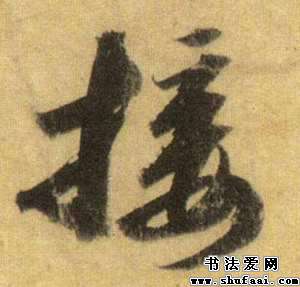 接
书法爱网
www.shufaai.com